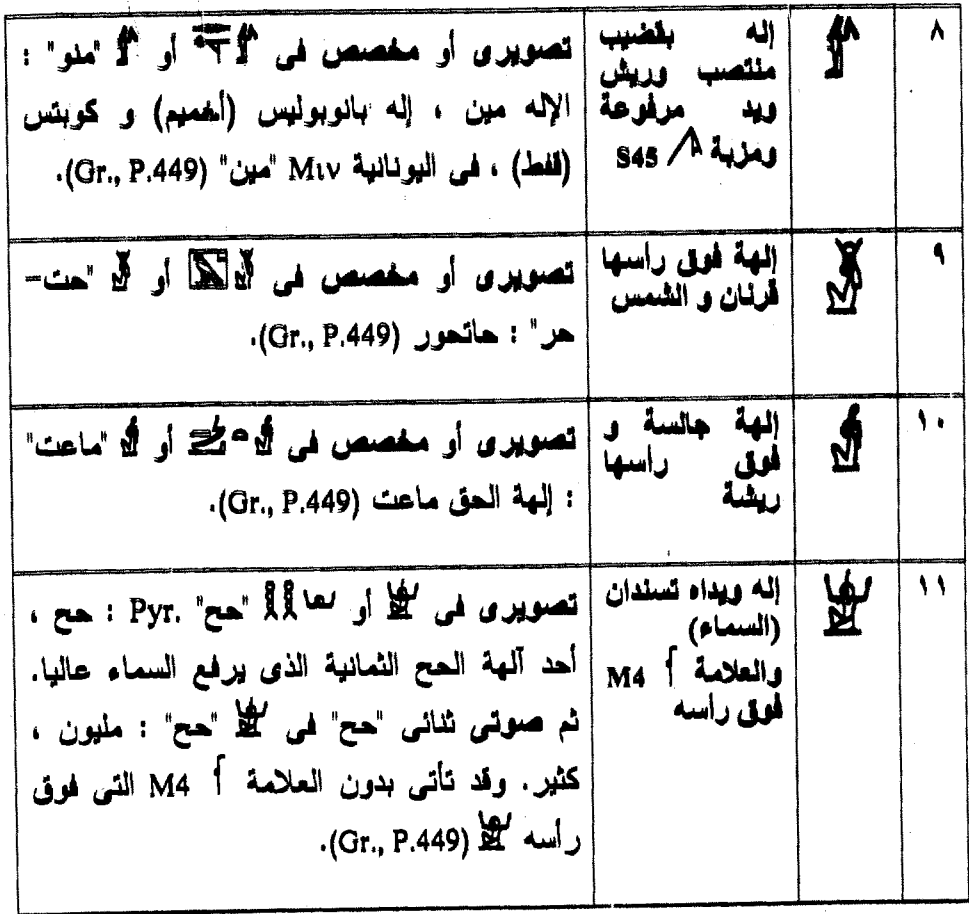 ٨
إله بقضيب
منتصب وريش
ويد مرفوعة
ومزبة S45
تصويرى أو مخصص فى أو "منو" :
الإله مين ، إله بانوبوليس (أخميم) و كوبتس
(قفط) ، فى اليونانية Μιν "مين" (Gr., P.449).
٩
إلهة فوق رأسها
قرنان و الشمس
تصويرى أو مخصص فى أو "حت-
حر" : حاتحور (Gr., P.449).
١٠
إلهة جالسة و
فوق رأسها
ريشة
تصويرى أو مخصص فى أو "ماعت"
: إلهة الحق ماعت (Gr., P.449).
١١
إله ويداه تسندان
(السماء)
والعلامة M4
فوق رأسه
تصويرى فى أو "حح" Pyr. : حح ،
أحد آلهة الحح الثمانية الذى يرفع السماء عاليا.
ثم صوتى ثنائى "حح" فى "حح" : مليون ،
كثير. وقد تأتى بدون العلامة M4 التى فوق
رأسه (Gr., P.449).